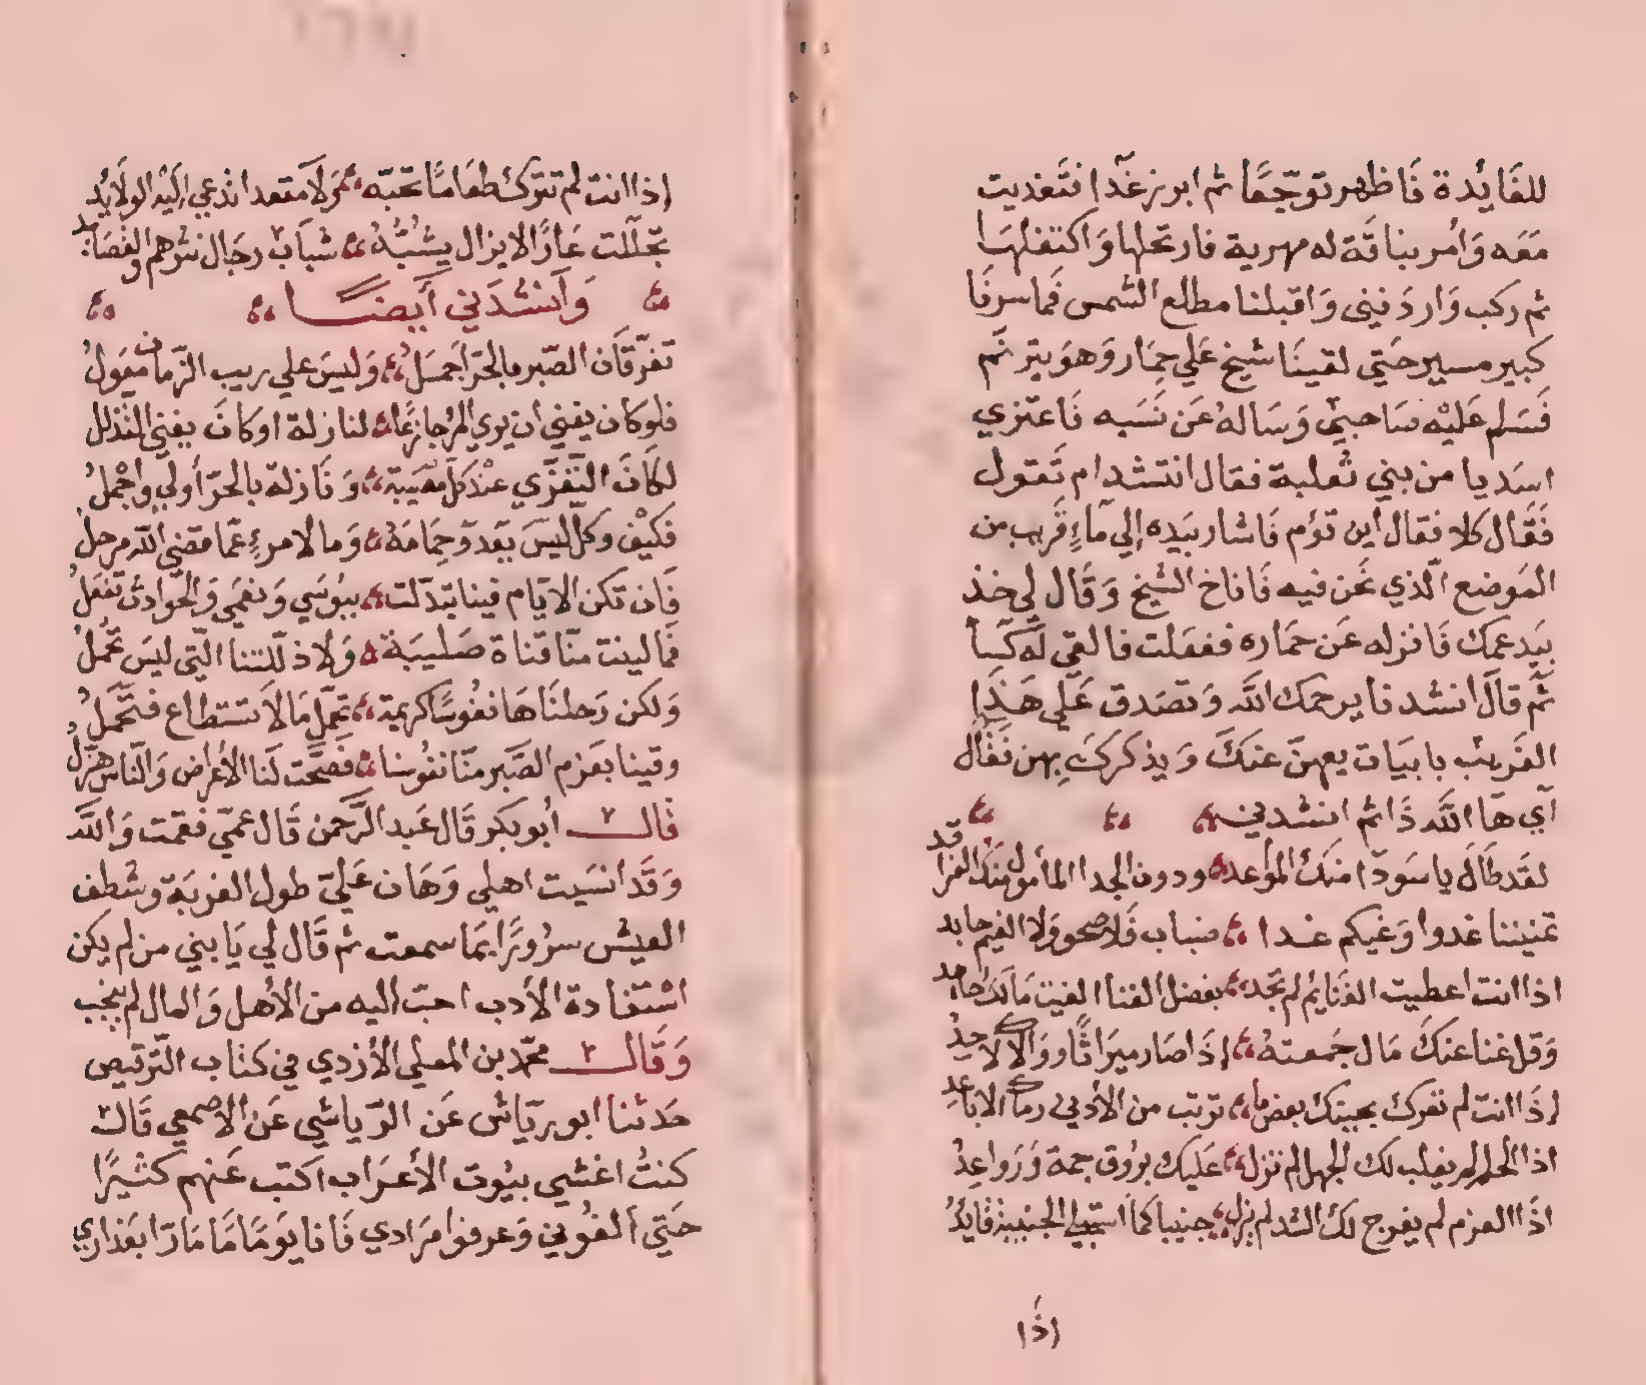 للفَايُدة فَاظهر توجّعًا ثم ابرز غَدًا فتَغديت
مَعَه وَامُر بناقَة له مهرية فارتحلها وَاكتفلهَا
ثم ركب وَاردَفني وَاقبلنا مطلع الشمس فما سرفَا
كبير مسير حتي لقينَا شيخ عَلي حِمَار وَهوَ يترنّم
فَسَلم عَليْه صَاحبي وَسَالهُ عَن نَسَبه فَاعتزي
اسَديا من بني ثعلبة فقال انتشد ام تَقول
فَقَال كلا فقال أين تؤم فَاشار بيَده إلي مَآءٍ قَريب من
المَوضع الّذي نحَن فيه فَاناخ الشيخ وَقَال لي خذ
بيَد عمك فَانزله عَن حمَاره ففعَلت فالقي لَه كسا
ثم قال انشدنا يرحمك اللّه وَتصَدق عَلي هَذَا
الغَريب بابيَات يعهنّ عنكَ وَيذكركَ بهن فَقَال
آي هَا اللّه ذَا ثم انشدني
لقد طَال يا سَودَا منكَ المواعد ودون الجدا المأمول منك الفراقد
تمنيننا غدوا وَغيكم غدا ضباب فَلا صحو وَلا الغيم جايد
اذا انت اعطيت الغَنا ثم لم تجد بفضل الغنا الفيت مَالك حامد
وَقل غنا عنكَ مَال جَمعتهُ إذَا صَار ميرَاثًا ووَاراك لاحِدُ
إذَا انت لم تعرك بجنبك بعض ما تريب من الأدني رماك الاباعِدِ
اذا الحلم لم يغلب لك الجهل لم تزل عَليك برُوق جمة وَرَواعِدُ
اذَا العزم لم يفرج لك الشد لم يزل جنيبا كما استتلي الجنيبة قَايدُ
اذَا
إذا انت لم تترك طعَامًا تحبّه وَلا مقعدا تدعي اليَه الولَايُد
تجلّلت عَارًا لا يزال يشُبُّهُ شبَاب رجَال نثرهم والقصَايد
وَانشدَني أيضًا
تعزّ فَان الصّبر بالحرّ اجمَلُ وَليسَ علي ريب الزّمان معَولُ
فلو كان يغني ان يري المرُ جازعًا لنازلة اوكَانَ يغني التذلل
لكَانَ التّعَزّي عنْد كلّ مصيبَة وَنَازلة بالحرّ أولي واجْملُ
فَكيْف وكلّ ليسَ يعَدوَ حِمَامَهُ وَما لامرءٍ عمّا قضي اللّه مرحلُ
فَان تكن الايّام فينا تبدّلت ببُوسَي وَنعْمَي وَالحوَادث تفعَلُ
فما لينت منّا قناة صَليبَة وَلا ذلّلتنا الّتي ليسَ تَجملُ
وَلكن رَحلنَاهَا نفُوسًا كريمة تحمّل مَا لا تستطاع فتحملُ
وقينا بعَزم الصّبر منّا نفُوسنا فَصحّت لَنا الأعْراض وَالنّاس هزّلُ
قال أبو بكر قَال عَبد الرَّحمن قَال عَميّ فقمت وَاللّه
وَقَد انسَيت اهلي وَهَان عَليّ طول الغربَة وشظف
العيش سرُورًا بمَا سمعت ثم قَال لي يَا بني من لم يكن
اسْتفَادة الأدب احبّ اليه من الأهل وَالمال لم ينجب
وَقَال محمّد بن المعلي الأزدي في كتَاب التّرقيص
حَدثنا ابو ريّاش عَن الرّياشي عَن الاصمعي قَال
كنتُ اغشي بيُوت الأعرَاب اكتب عَنهم كثيرًا
حَتيّ الفُوني وَعرفوا مرَادي فَانا يوَمًا مَارّا بعَذاري